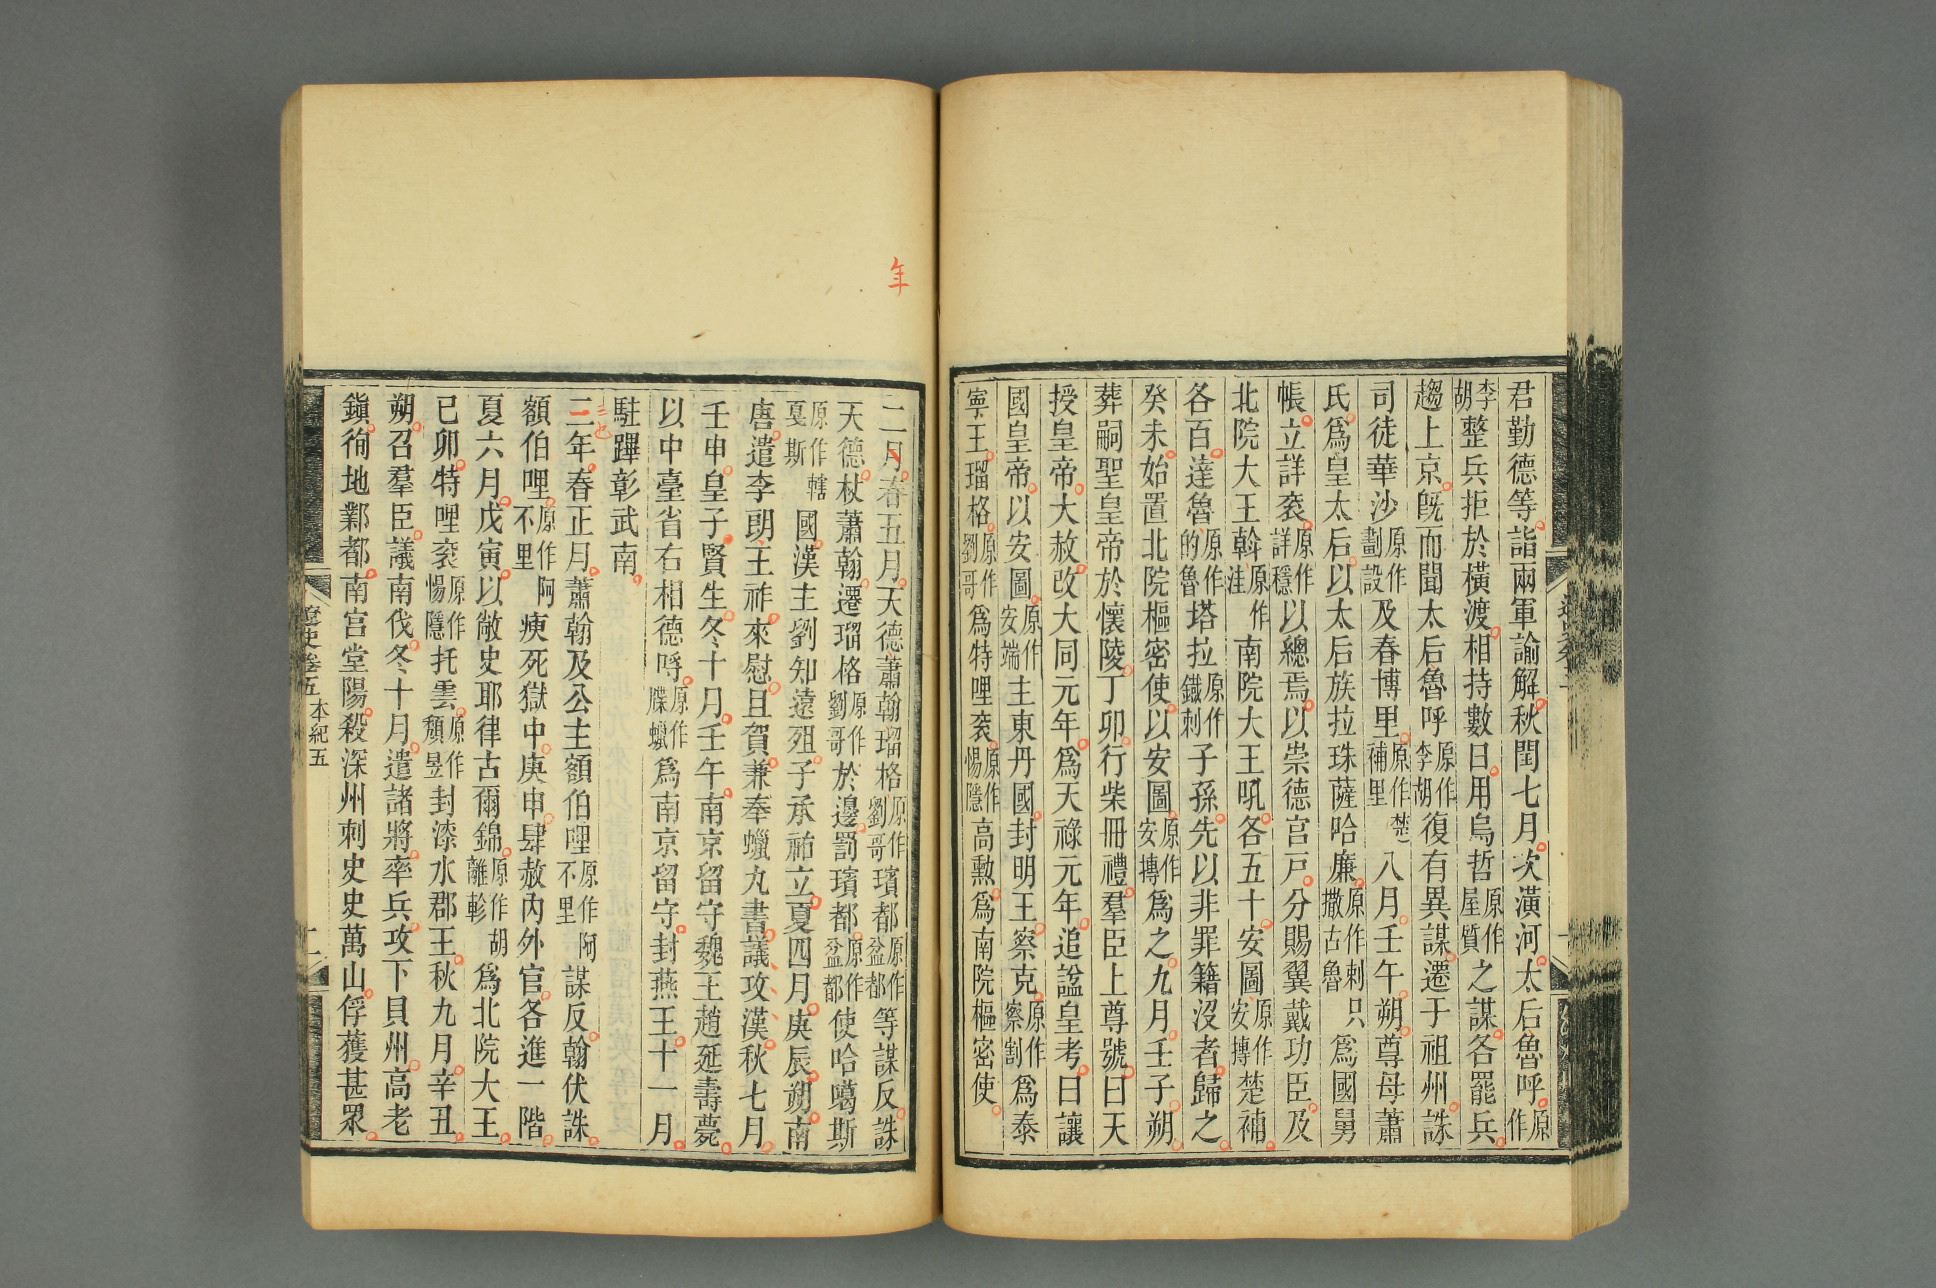 君勤德等詣兩軍諭解秋閏七月次潢河太后魯呼原作
李胡整兵拒於橫渡相持數日用烏哲原作屋質之謀各罷兵
趨上京旣而聞太后魯呼原作李胡復有異謀遷于祖州誅
司徒華沙原作劃設及春博里原作楚補里八月壬午朔尊母蕭
氏爲皇太后以太后族拉珠薩哈廉原作剌只撒古魯爲國舅
帳立詳袞原作詳穩以總焉以崇德宮戸分賜翼戴功臣及
北院大王斡原作洼南院大王吼各五十安圖原作安摶楚補
各百達魯原作的魯塔拉原作鐵剌子孫先以非罪籍沒者歸之
癸未始置北院樞密使以安圖原作安摶爲之九月壬子朔
葬嗣聖皇帝於懷陵丁卯行柴冊禮羣臣上尊號曰天
授皇帝大赦改大同元年爲天祿元年追諡皇考曰讓
國皇帝以安圖原作安端主東丹國封明王察克原作察割爲泰
寧王瑠格原作劉哥爲特哩袞原作惕隱高勳爲南院樞密使
年
二月春五月天德蕭翰瑠格原作劉哥璸都原作盆都等謀反誅
天德杖蕭翰遷瑠格原作劉哥於邊罰璸都原作盆都使哈噶斯
原作轄戛斯國漢主劉知遠殂子承祐立夏四月庚辰朔南
唐遣李朗王祚來慰且賀兼奉蠟丸書議攻漢秋七月
壬申皇子賢生冬十月壬午南京留守魏王趙延壽薨
以中臺省右相德呼原作牒蠟爲南京留守封燕王十一月
駐蹕彰武南
三也
二年春正月蕭翰及公主額伯哩原作阿不里謀反翰伏誅
額伯哩原作阿不里瘐死獄中庚申肆赦內外官各進一階
夏六月戊寅以敞史耶律古爾錦原作胡離軫爲北院大王
已卯特哩袞原作惕隱托雲原作頹昱封漆水郡王秋九月辛丑
朔召羣臣議南伐冬十月遣諸將率兵攻下貝州高老
鎭徇地鄴都南宮堂陽殺深州刺史史萬山俘獲甚眾
遼史卷五 本紀五 二